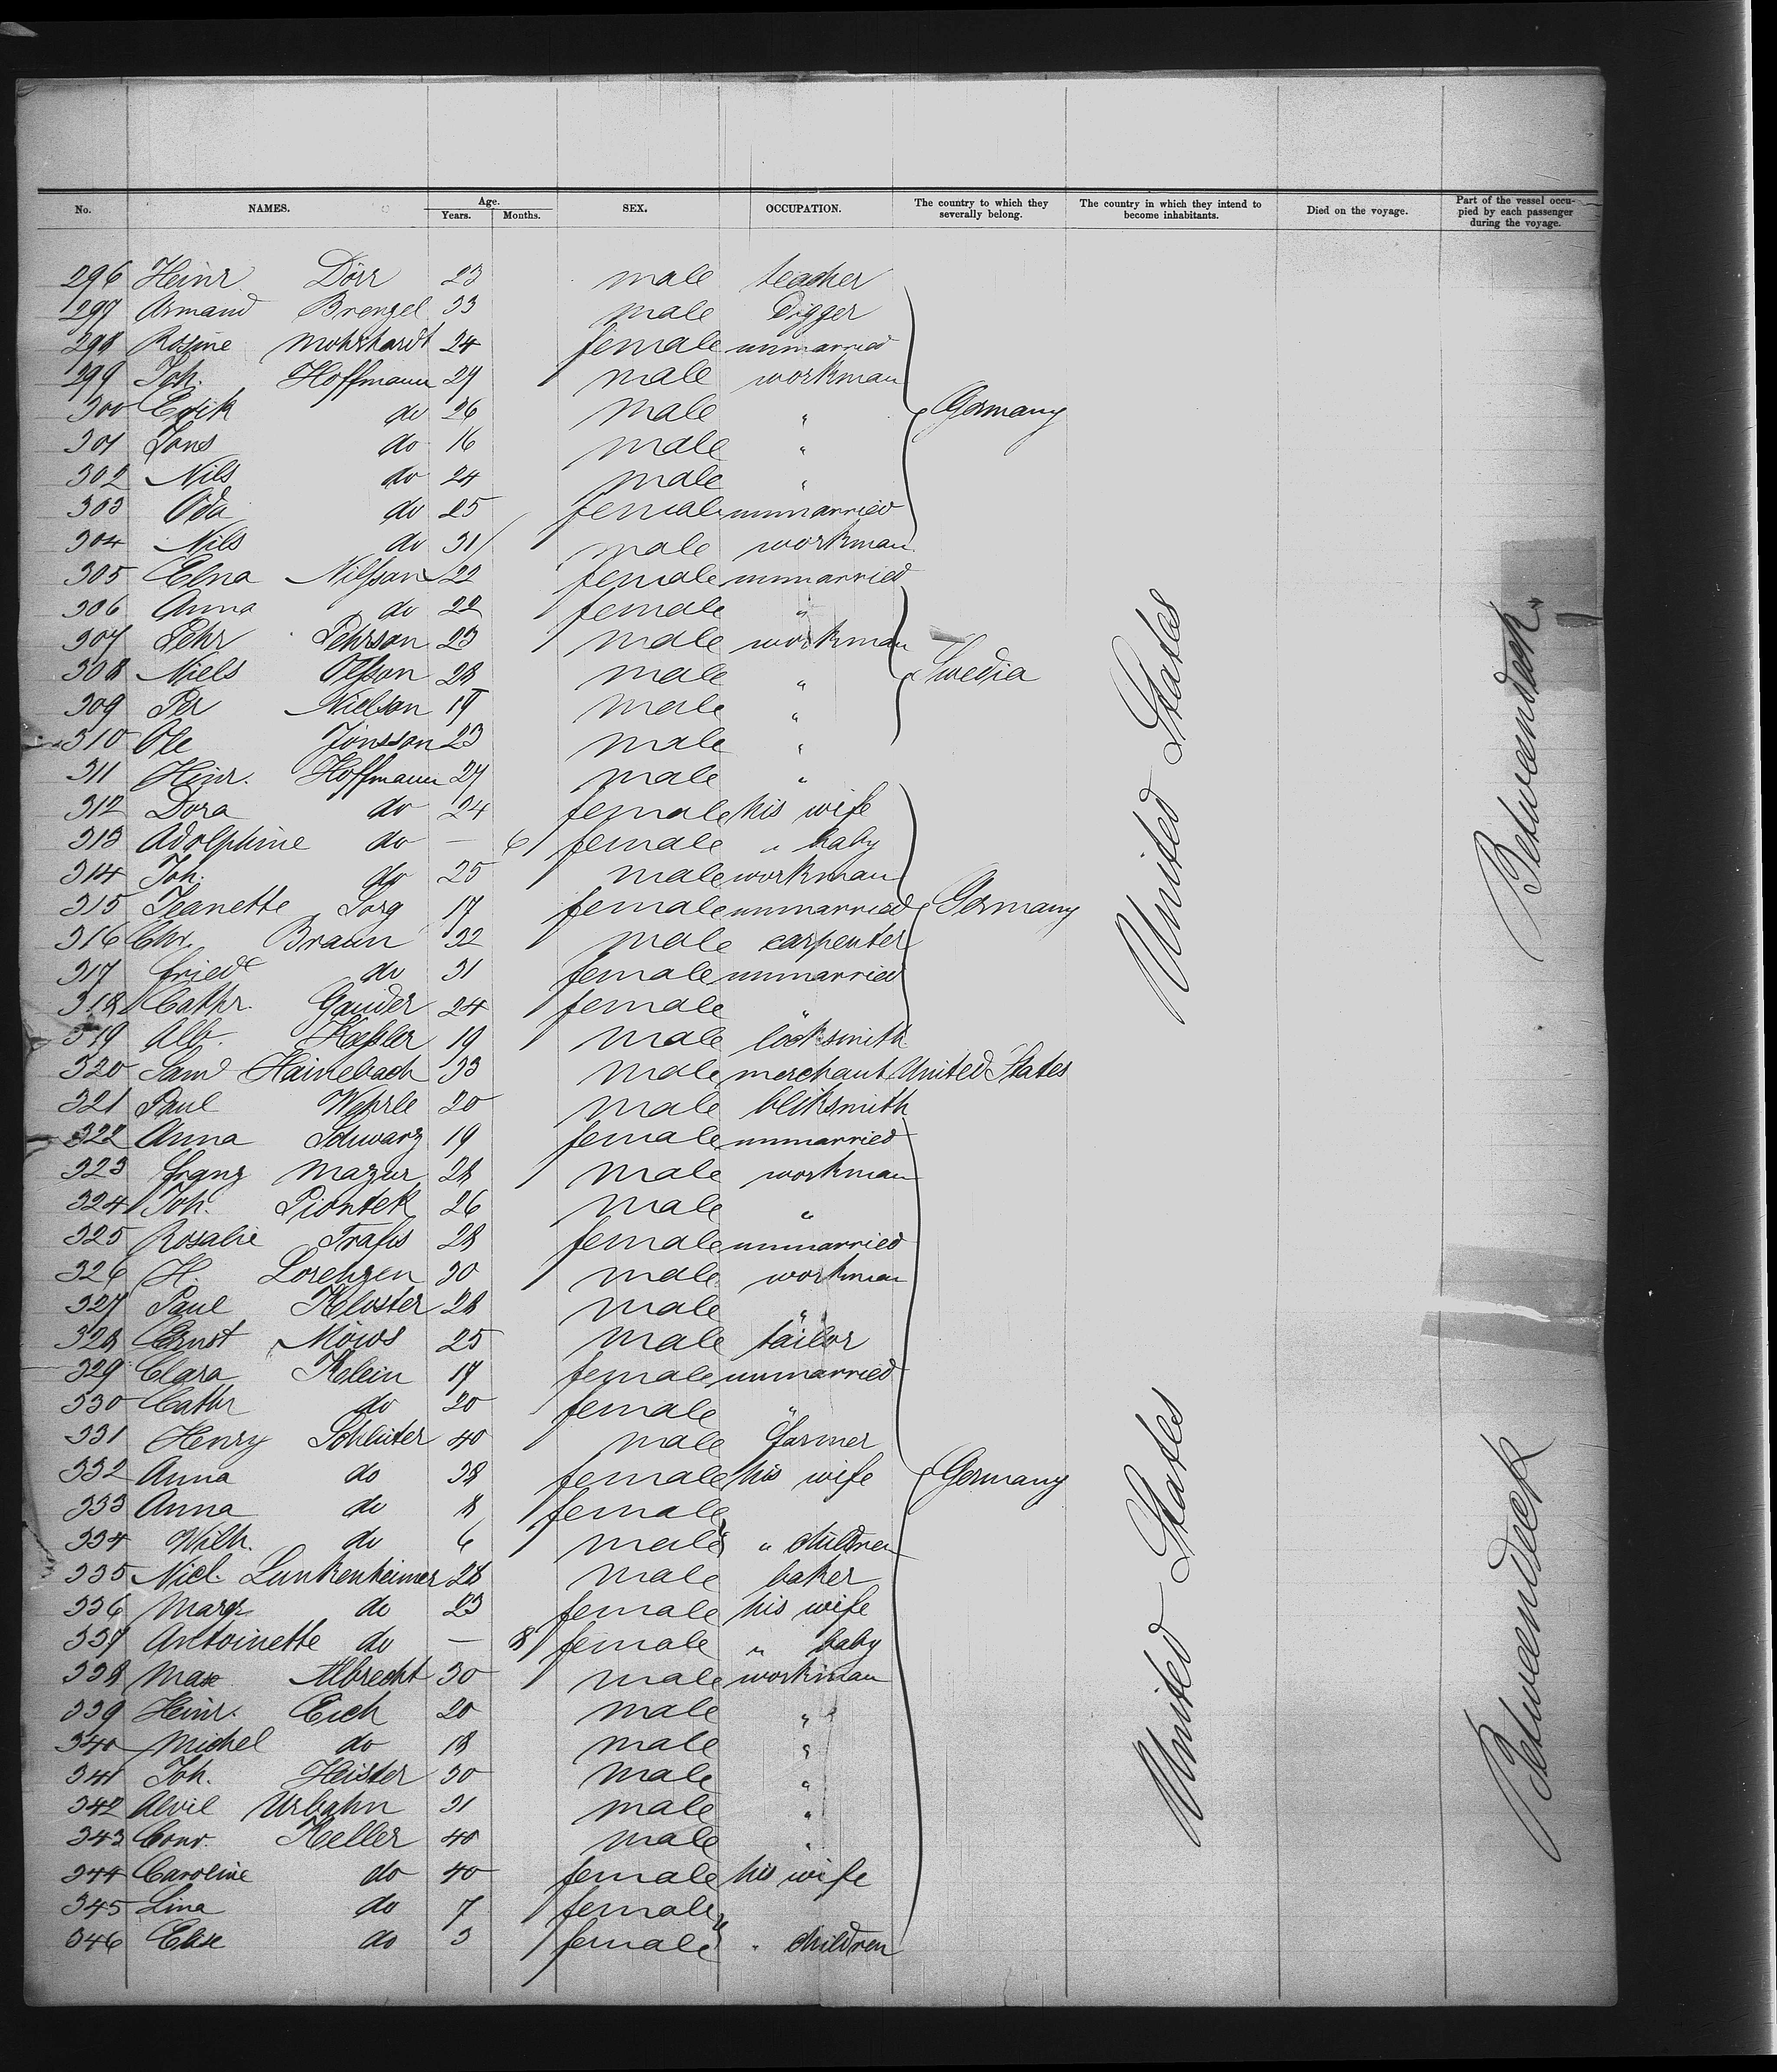 No. NAMES. Age. Years. Months. SEX. OCCUPATION. The country to which they severally belong. The country in which they intend to become inhabitants. Died on the voyage. Part of the vessel occupied by each passenger during the voyage.
296 Heinr. Dörr 23 male teacher
297 Armand Brengel 33 male Digger
298 Rosine Mohrhardt 24 female unmarried
299 Joh. Hoffmann 27 male workman
300 Erik do 26 male " Germany
301 Lons do 16 male "
302 Nils do 24 male "
303 Oda do 25 female unmarried
304 Nils do 31 male workman
305 Elna Nilsson 22 female unmarried
306 Anna do 22 female "
307 Pehr Pehrson 23 male workman
308 Niels Olsson 28 male " Swedia
309 Per Nielson 19 male "
310 Ole Jönsson 23 male "
311 Hinr. Hoffmann 27 male "
312 Dora do 24 female his wife
313 Adolphine do — 6 female " baby
314 Joh. do 25 male workman
315 Jeanette Sorg 17 female unmarried Germany
316 Chr. Braun 32 male carpenter
317 Fried do 31 female unmarried
318 Cathr. Gauder 24 female "
319 Alb. Kessler 19 male locksmith
320 Saml Hainebach 33 male merchant United States
321 Paul Wehrle 20 male bliksmith
322 Anna Schwarz 19 female unmarried
323 Franz Mazur 28 male workman
324 Joh. Piontek 26 male "
325 Rosalie Trafis 28 female unmarried
326 H. Lorenzen 30 male workman
327 Paul Kloster 28 male "
328 Ernst Möws 25 male tailor
329 Clara Klein 17 female unmarried
330 Cathr do 20 female "
331 Henry Schlüter 40 male farmer
332 Anna do 38 female his wife Germany
333 Anna do 8 female
334 Wilh. do 6 male " children
335 Nicl. Lunkenheimer 28 male baker
336 Margr. do 23 female his wife
337 Antoinette do — 8 female " baby
338 Max Albrecht 30 male workman
339 Heinr. Eich 20 male "
340 Michel do 18 male "
341 Joh. Heister 30 male "
342 Alvil Urbahn 31 male "
343 Conr. Keller 40 male "
344 Caroline do 40 female his wife
345 Lina do 7 female
346 Elise do 3 female " children
United States
Betweendeck
United States
Betweendeck